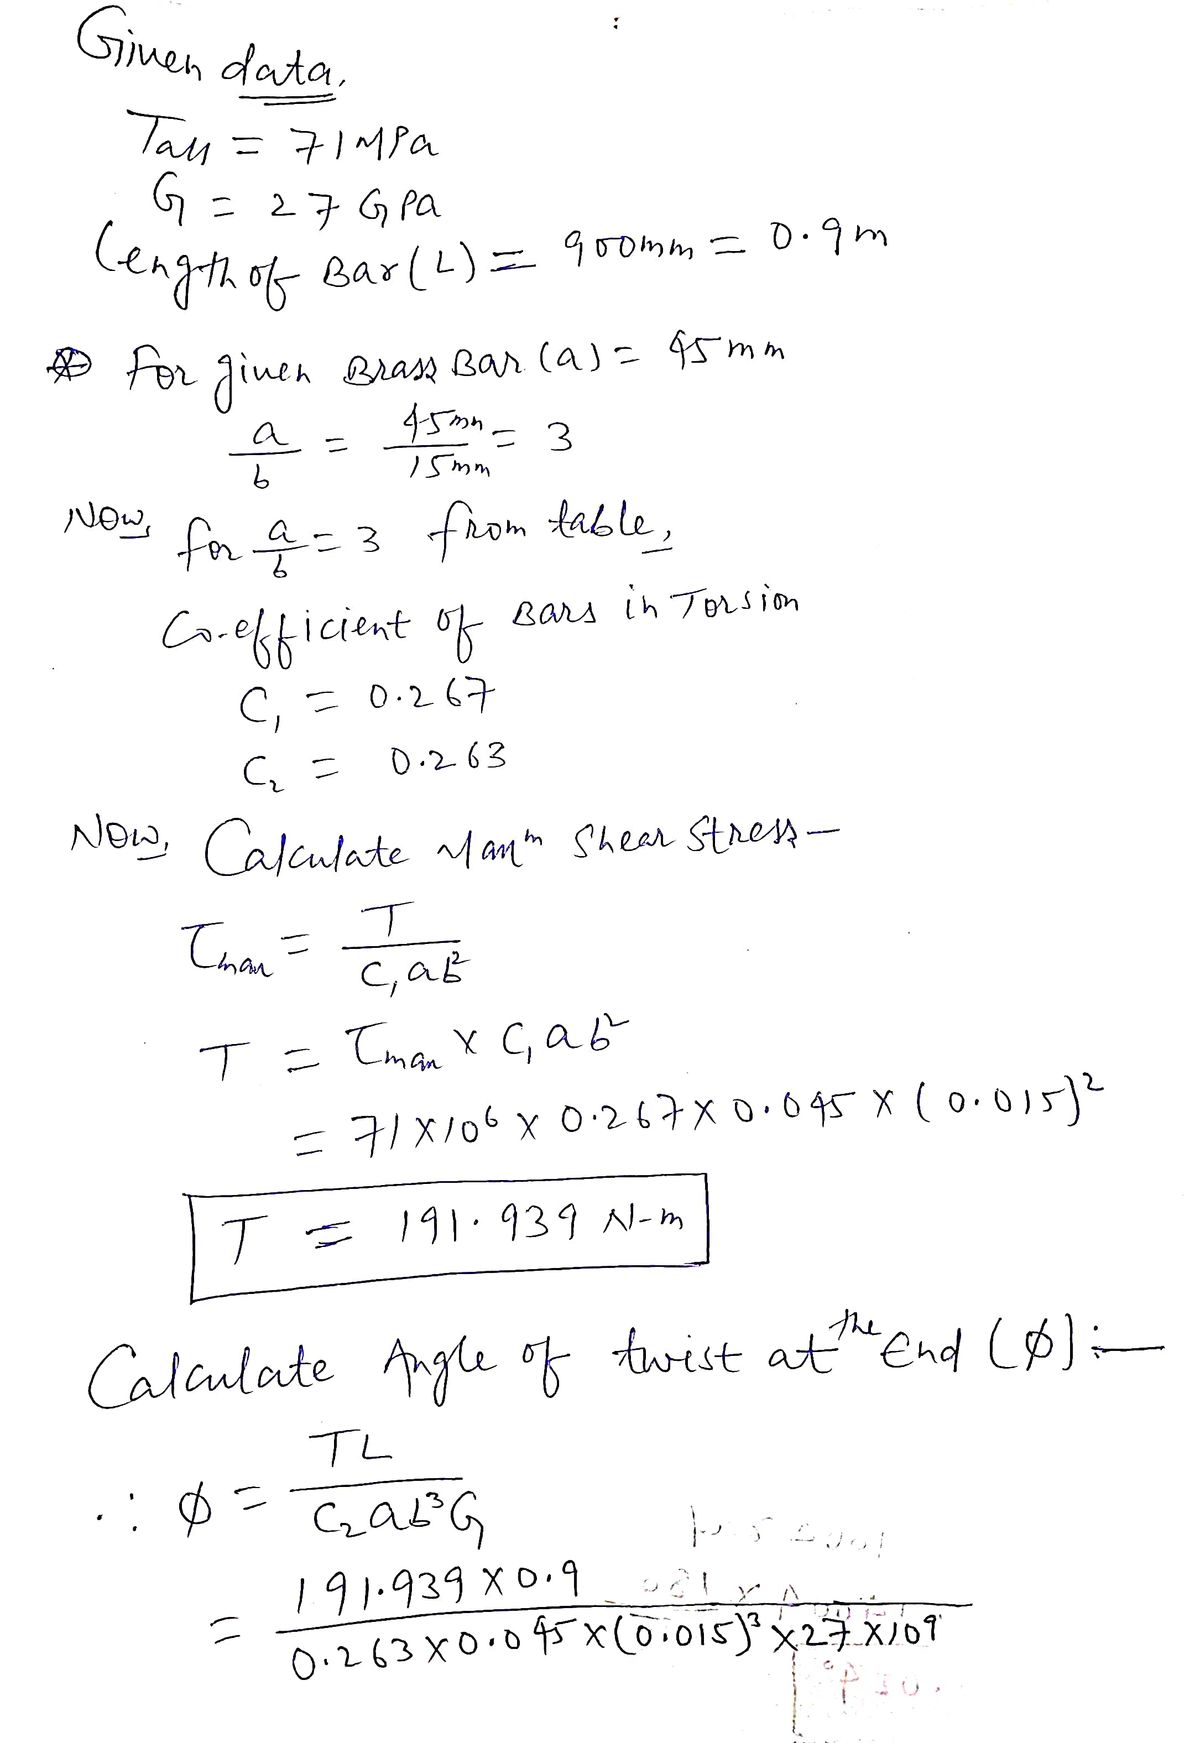 Given data,
Tall = 71 MPa
G = 27 GPa
Length of Bar (L) = 900mm = 0.9m
For given Brass Bar (a) = 45 mm
a/b = 45mm/15mm = 3
Now, for a/b = 3 from table,
Co-efficient of Bars in Torsion
C₁ = 0.267
C₂ = 0.263
Now, Calculate Maxᵐ Shear Stress —
τmax = T/C₁ab²
T = τmax × C₁ab²
= 71×10⁶ × 0.267 × 0.045 × (0.015)²
T = 191.939 N-m
Calculate Angle of twist at the End (φ) :—
∴ φ = TL/C₂ab³G
= 191.939 × 0.9/0.263 × 0.045 × (0.015)³ × 27 × 10⁹